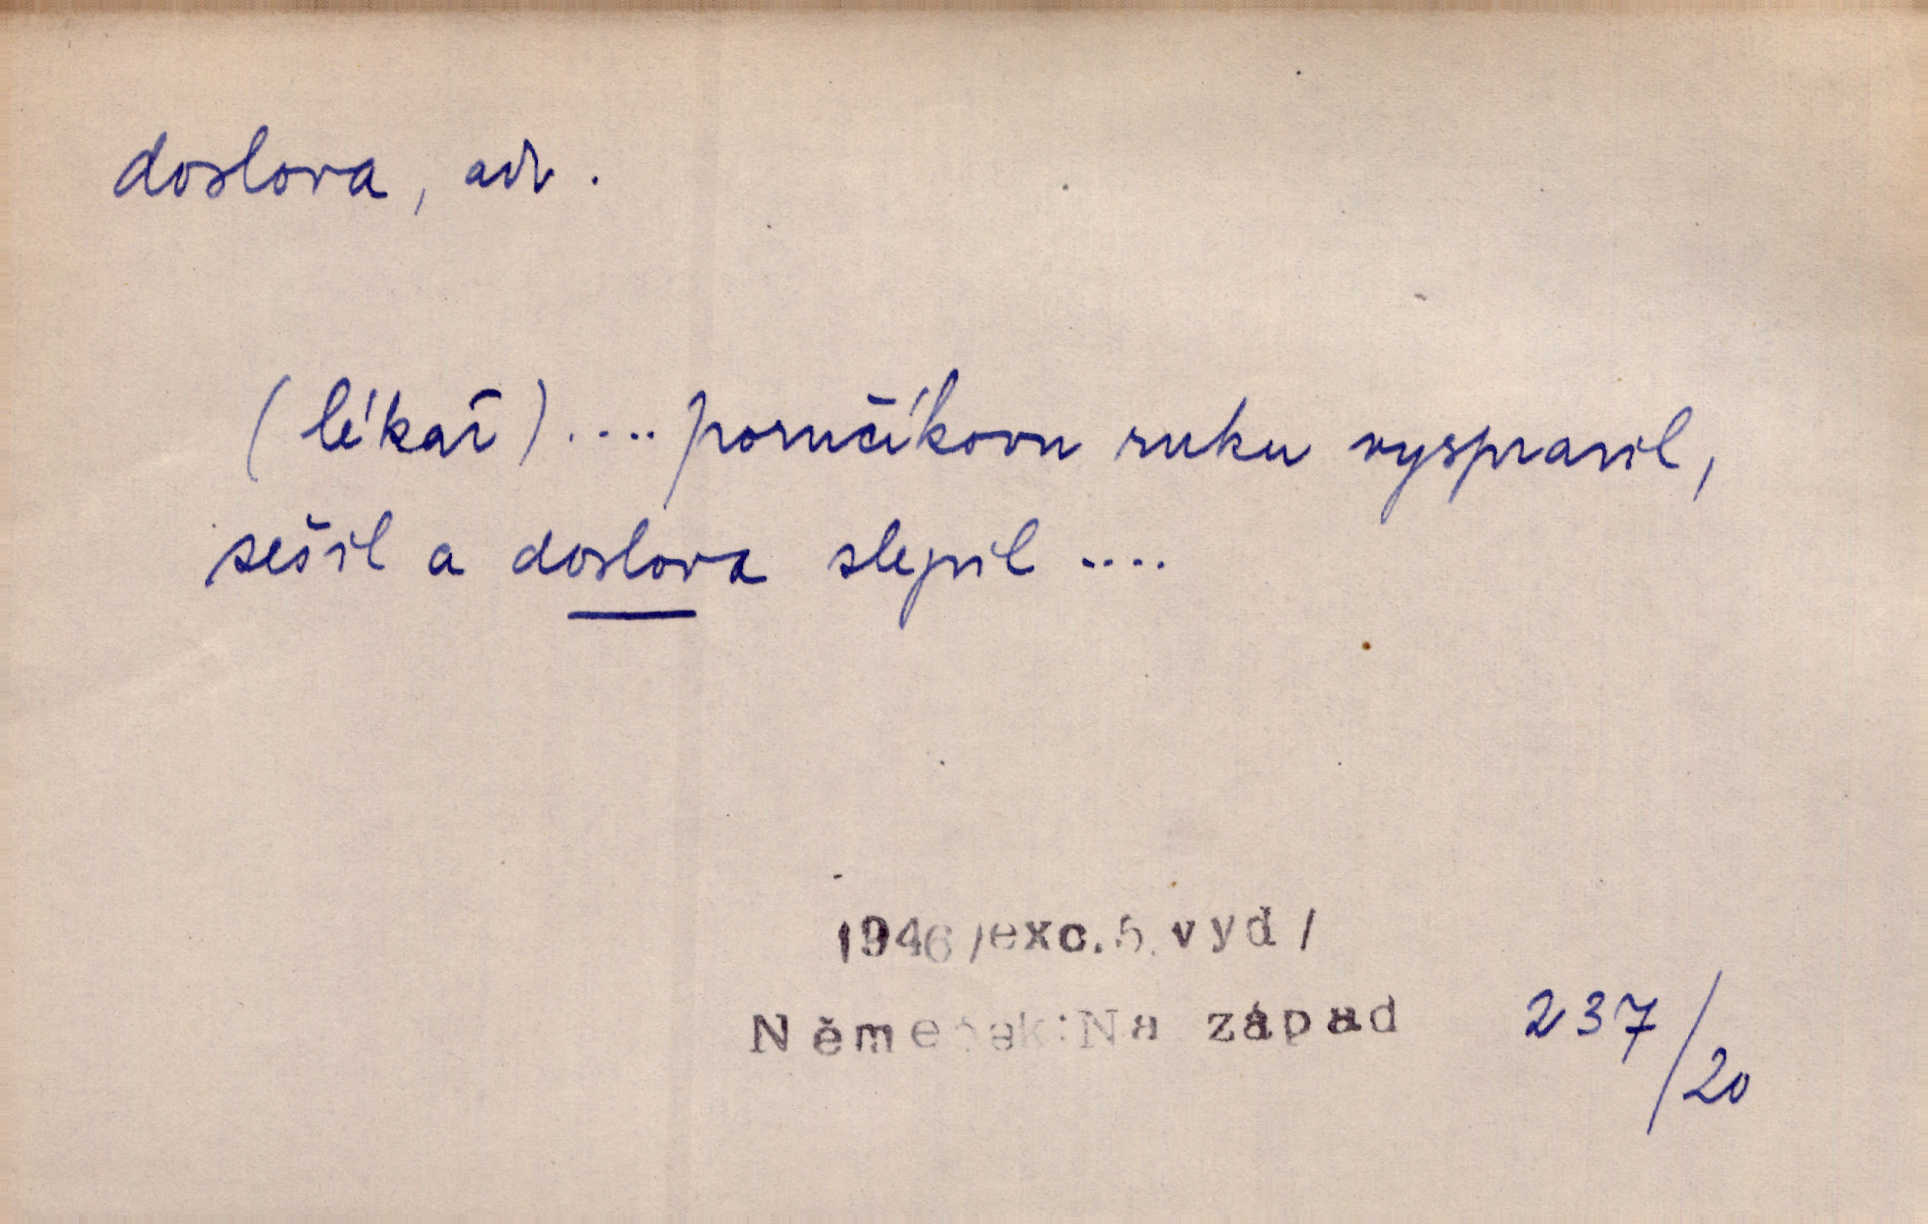 doslova, adv.
(lékař).... poručíkovu ruku vyspravil,
sešil a doslova slepil ....
1946/exc.5.vyd/
Němeček:Na západ 237/20